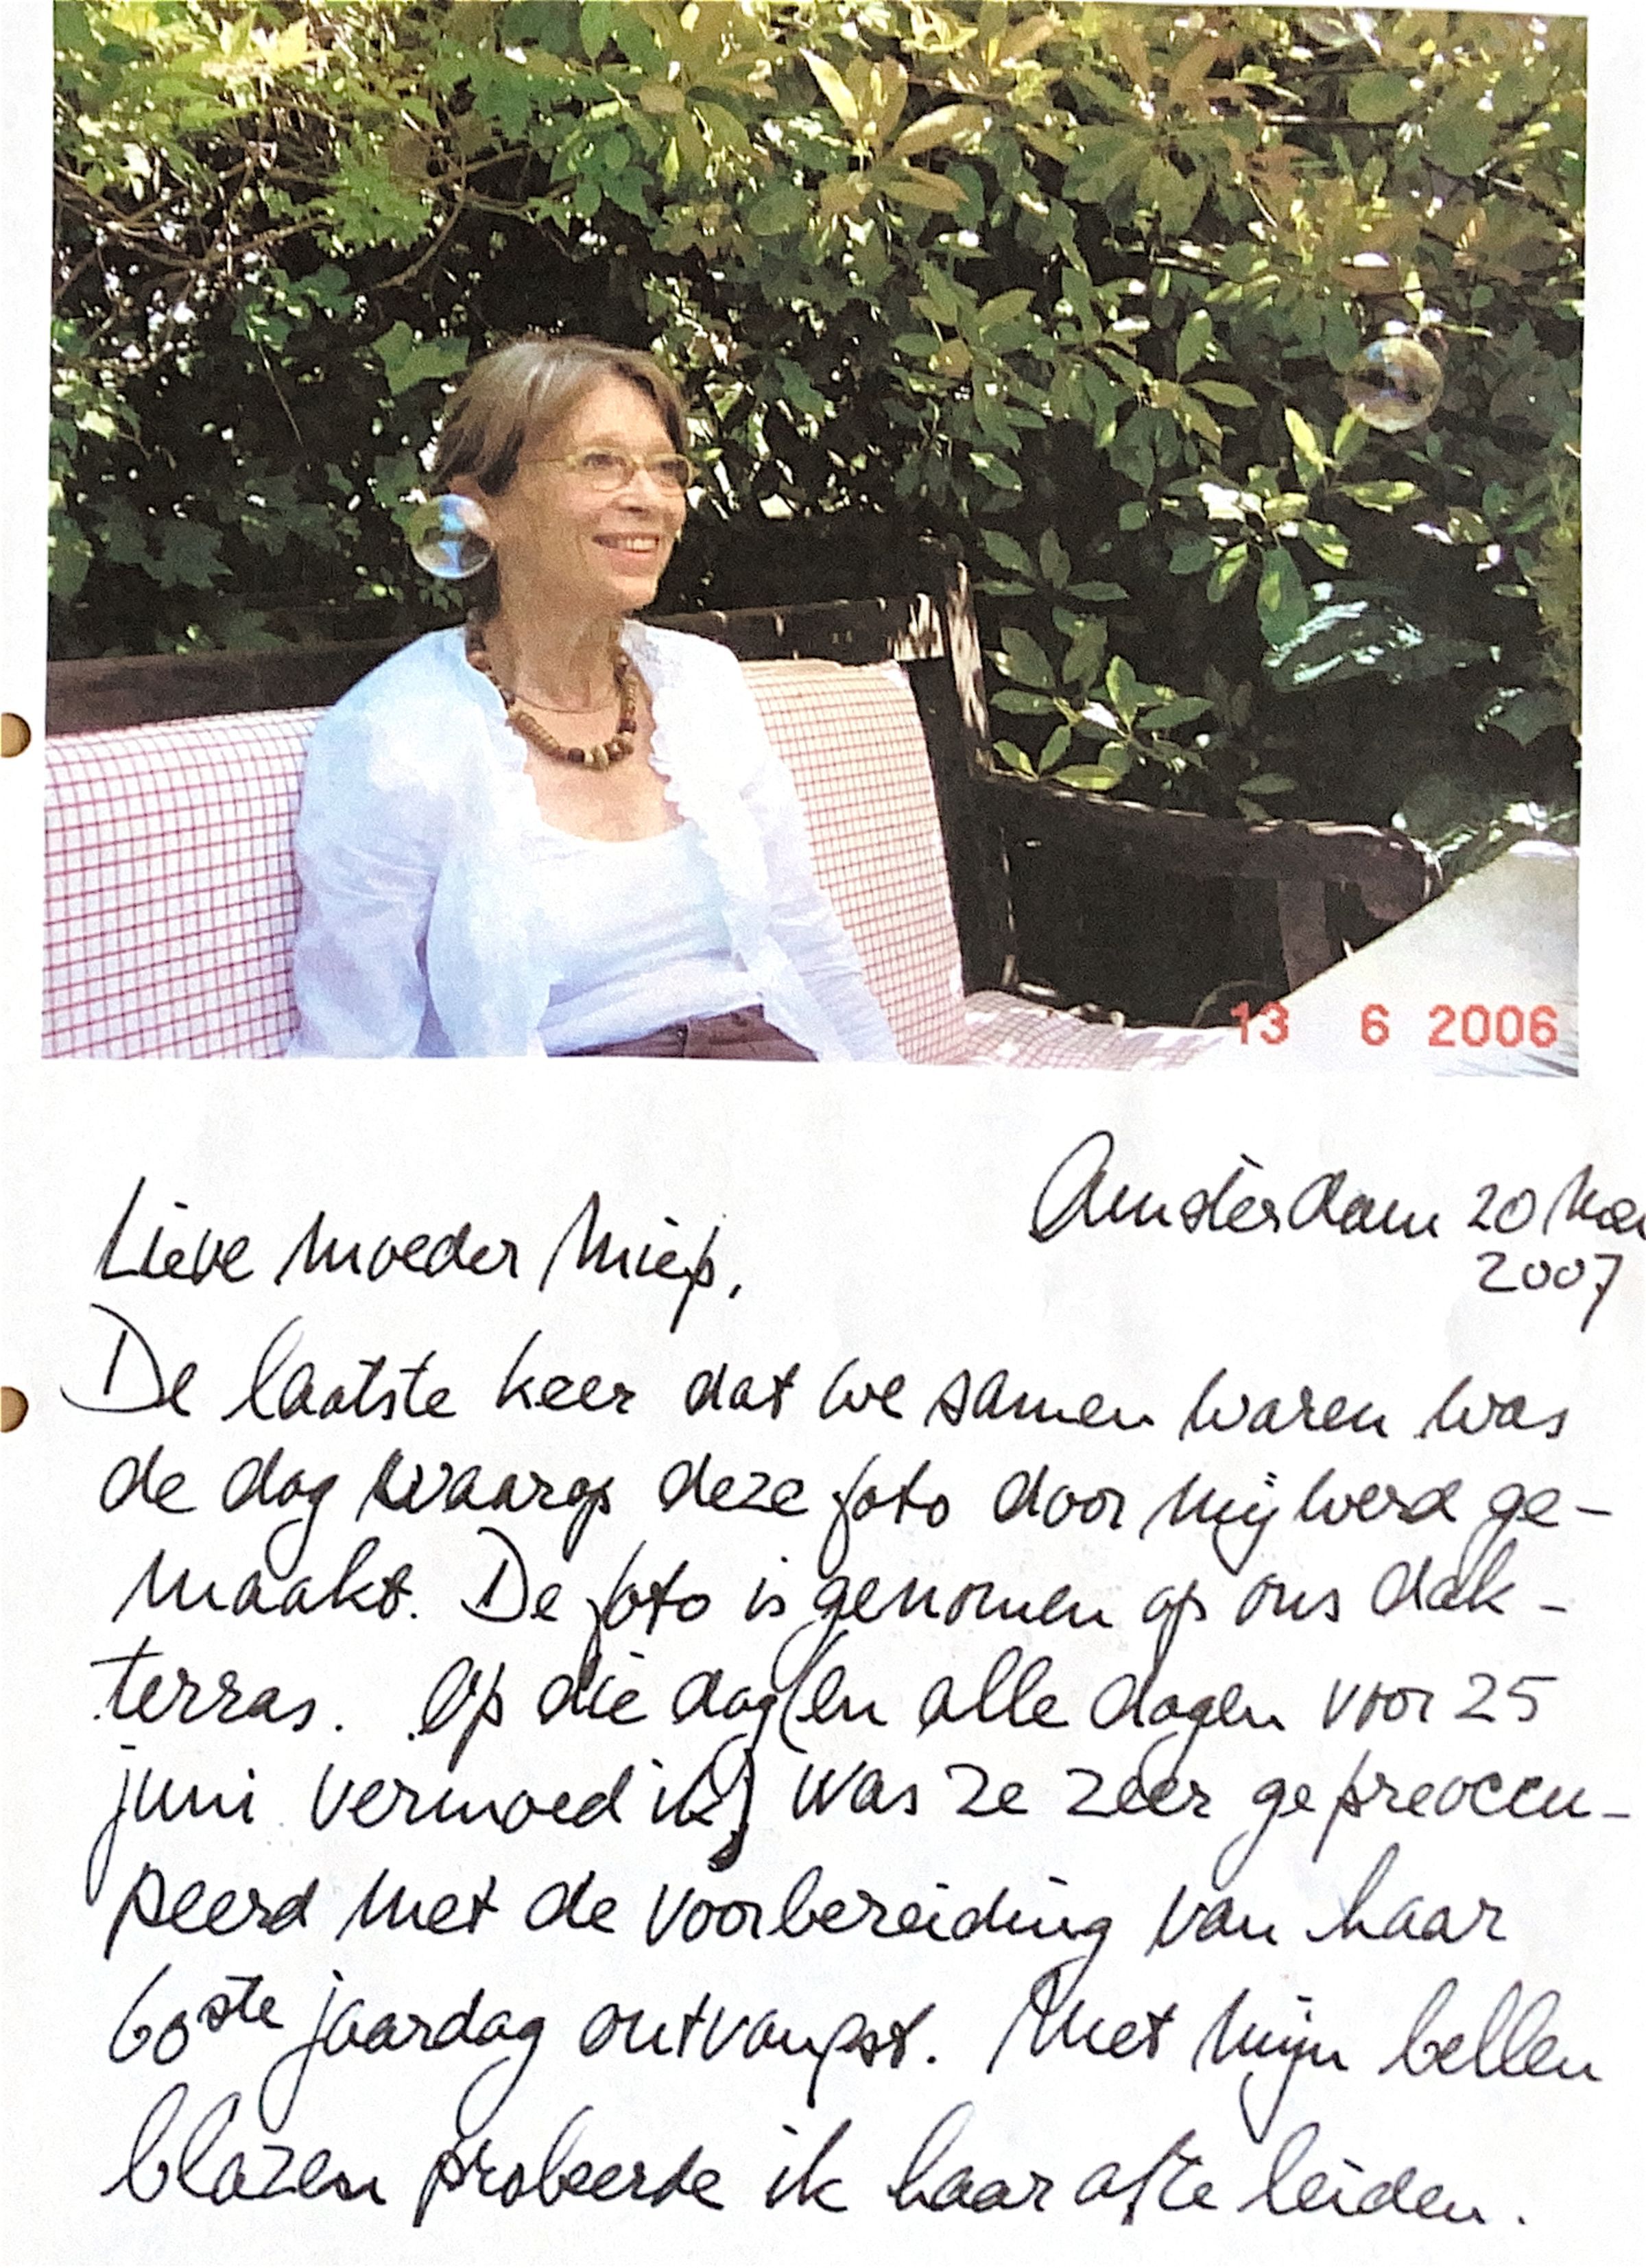 13 6 2006
Amsterdam 20 Mei
2007
Lieve moeder Miep,
De laatste keer dat we samen waren was
de dag waarop deze foto door mij werd ge-
maakt. De foto is genomen op ons dak-
terras. Op die dag (en alle dagen voor 25
juni vermoed ik) was ze zeer gepreoccu-
peerd met de voorbereiding van haar
60ste jaardag ontvangst. Met mijn bellen
blazen probeerde ik haar af te leiden.